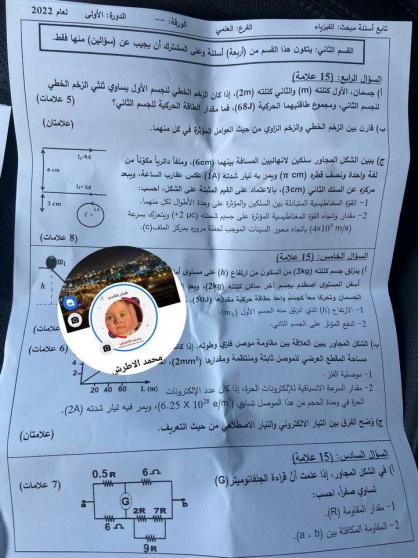 تابع أسئلة مبحث: الفيزياء
الفرع: العلمي
الورقة: ---
الدورة: الأولى
لعام 2022
القسم الثاني: يتكون هذا القسم من (أربعة) أسئلة وعلى المشترك أن يجيب عن (سؤالين) منها فقط.
السؤال الرابع: (15 علامة)
أ) جسمان، الأول كتلته (m) والثاني كتلته (2m)، إذا كان الزخم الخطي للجسم الأول يساوي ثلثي الزخم الخطي
للجسم الثاني، ومجموع طاقتيهما الحركية (68J)، فما مقدار الطاقة الحركية للجسم الثاني؟ (5 علامات)
ب) قارن بين الزخم الخطي والزخم الزاوي من حيث العوامل المؤثرة في كل منهما. (علامتان)
ج) يبين الشكل المجاور سلكين لانهائيين المسافة بينهما (6cm)، وملفاً دائرياً مكوّناً من
لفة واحدة ونصف قطره (π cm) ويمر به تيار شدته (1A) عكس عقارب الساعة، ويبعد
مركزه عن السلك الثاني (3cm)، بالاعتماد على القيم المثبتة على الشكل، احسب:
1- القوة المغناطيسية المتبادلة بين السلكين والمؤثرة على وحدة الأطوال لكل منهما.
2- مقدار واتجاه القوة المغناطيسية المؤثرة على جسم شحنته (+2 μc) ويتحرك بسرعة
(4x10⁵ m/s) باتجاه محور السينات الموجب لحظة مروره بمركز الملف(c).
(8 علامات)
6 cm
3 cm
السؤال الخامس: (15 علامة)
أ) ينزلق جسم كتلته (2kg) من السكون من ارتفاع (h) على مستوى
أسفل المستوى اصطدم بجسم آخر ساكن كتلته (2kg)،
الجسمان وتحركا معاً كجسم واحد بطاقة حركية مقدارها (50J)،
1- الارتفاع (h) الذي انزلق منه الجسم الأول (m₁).
2- الدفع المؤثر على الجسم الثاني.
m₁
h
محمد الاطرش
ب) الشكل المجاور يبين العلاقة بين مقاومة موصل فلزي وطوله، إذا
مساحة المقطع العرضي للموصل ثابتة ومنتظمة ومقدارها (2mm²)،
(6 علامات)
1- موصلية الفلز.
2- مقدار السرعة الانسياقية للإلكترونات الحرة، إذا كان عدد الإلكترونات
الحرة في وحدة الحجم من هذا الموصل تساوي (6.25 X 10²⁸ e/m³)، ويمر فيه تيار شدته (2A).
2
20 40 60 L (m)
ج) وَضح الفرق بين التيار الالكتروني والتيار الاصطلاحي من حيث التعريف. (علامتان)
السؤال السادس: (15 علامة)
أ) في الشكل المجاور، إذا علمت أنّ قراءة الجلفانوميتر(G)
تساوي صفراً، احسب: (7 علامات)
1- مقدار المقاومة (R).
2- المقاومة المكافئة بين (a ، b).
0.5R 6Ω
a G b
6Ω 2R 7R
9R